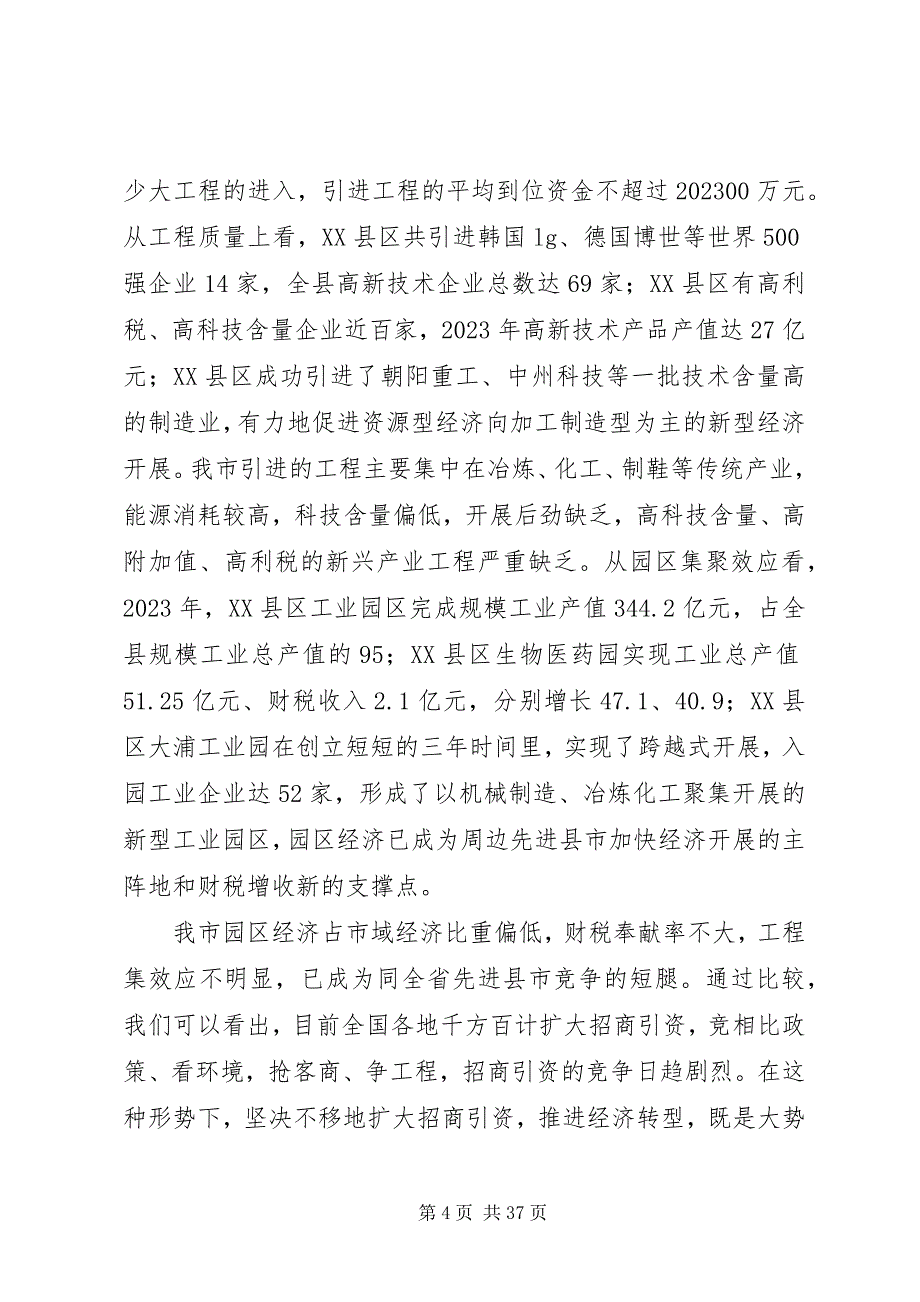 少大工程的进入，引进工程的平均到位资金不超过 202300 万元。
从工程质量上看，XX 县区共引进韩国 lg、德国博世等世界 500
强企业 14 家，全县高新技术企业总数达 69 家；XX 县区有高利
税、高科技含量企业近百家，2023 年高新技术产品产值达 27 亿
元；XX 县区成功引进了朝阳重工、中州科技等一批技术含量高
的制造业，有力地促进资源型经济向加工制造型为主的新型经济
开展。我市引进的工程主要集中在冶炼、化工、制鞋等传统产业，
能源消耗较高，科技含量偏低，开展后劲缺乏，高科技含量、高
附加值、高利税的新兴产业工程严重缺乏。从园区集聚效应看，
2023 年，XX 县区工业园区完成规模工业产值 344.2 亿元，占全
县规模工业总产值的 95；XX 县区生物医药园实现工业总产值
51.25 亿元、财税收入 2.1 亿元，分别增长 47.1、40.9；XX 县
区大浦工业园在创立短短的三年时间里，实现了跨越式开展，入
园工业企业达 52 家，形成了以机械制造、冶炼化工聚集开展的
新型工业园区，园区经济已成为周边先进县市加快经济开展的主
阵地和财税增收新的支撑点。
我市园区经济占市域经济比重偏低，财税奉献率不大，工程
集效应不明显，已成为同全省先进县市竞争的短腿。通过比较，
我们可以看出，目前全国各地千方百计扩大招商引资，竞相比政
策、看环境，抢客商、争工程，招商引资的竞争日趋剧烈。在这
种形势下，坚决不移地扩大招商引资，推进经济转型，既是大势
第 4 页 共 37 页